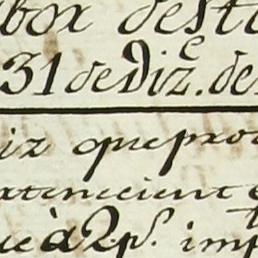 box desta
31 de Diz.e de
iz que pro
atenecient
ue à 2 p.s imp